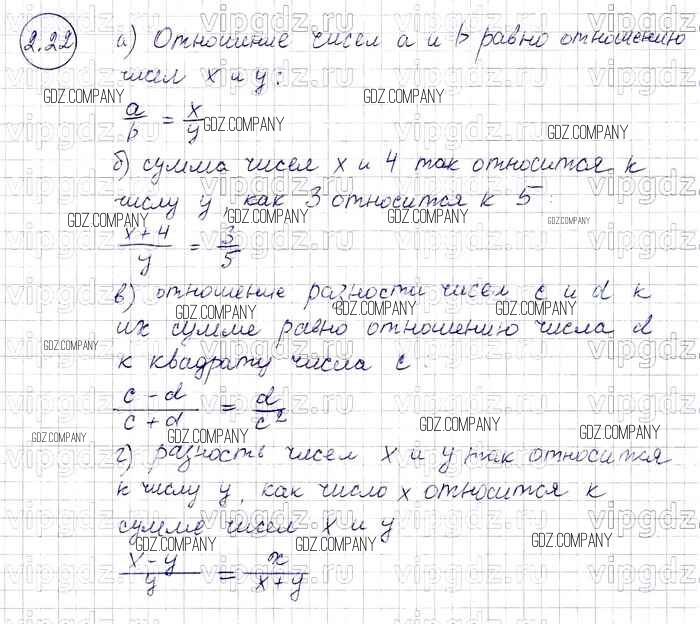 2.22
а) Отношение чисел a и b равно отношению
чисел x и y:
a/b = x/y
б) сумма чисел x и 4 так относится к
числу y, как 3 относится к 5:
(x+4)/y = 3/5
в) отношение разности чисел c и d к
их сумме равно отношению числа d
к квадрату числа c.
(c-d)/(c+d) = d/c²
г) разность чисел x и y так относится
к числу y, как число x относится к
сумме чисел x и y
(x-y)/y = x/(x+y)
GDZ.COMPANY
vipgdz.ru